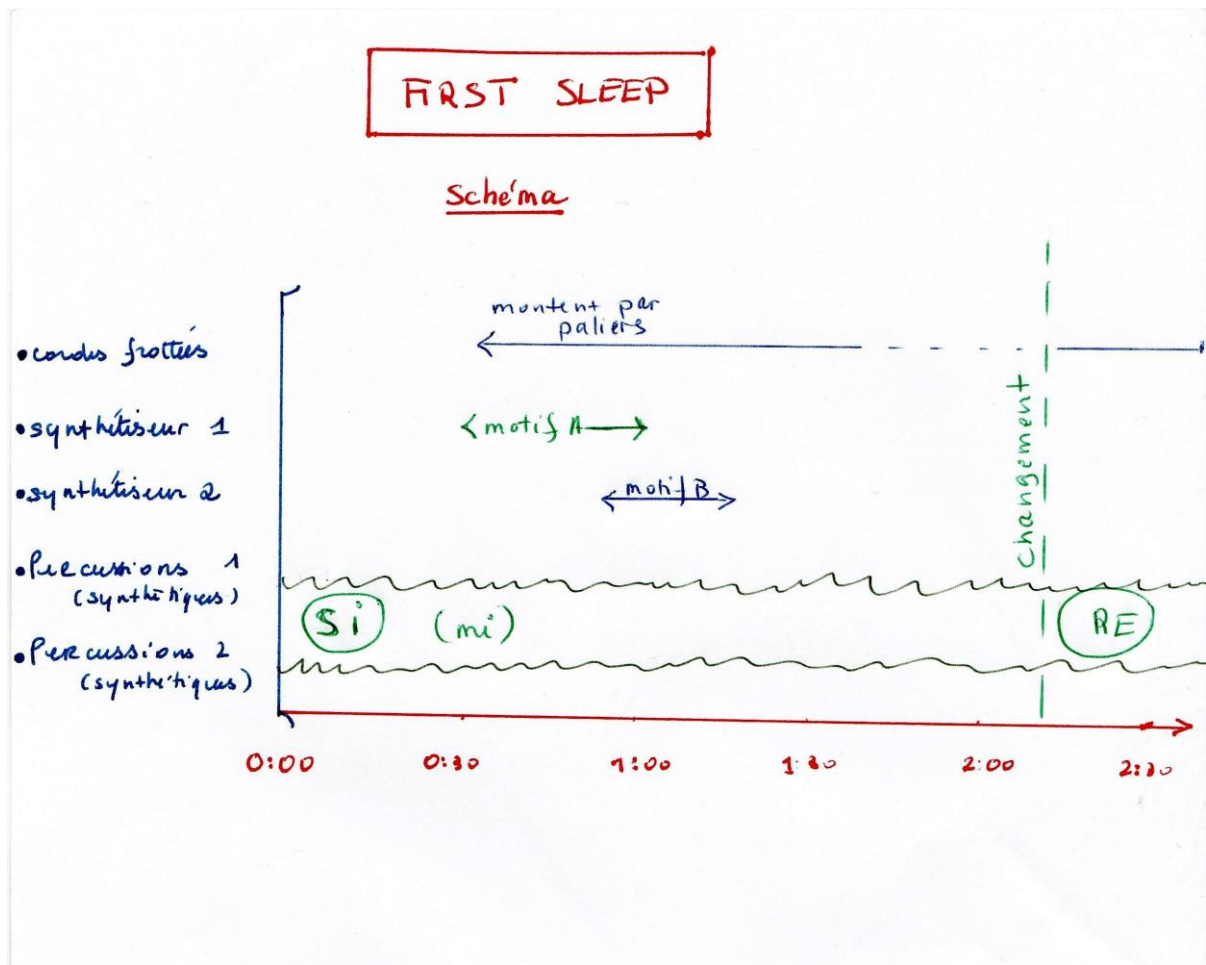 FIRST SLEEP
Schéma
montent par
paliers
• cordes frottées
• synthétiseur 1
<motif A→
• synthétiseur 2
motif B
changement
• Percussions 1
(synthétiques)
Si (mi) RE
• Percussions 2
(synthétiques)
0:00 0:30 1:00 1:30 2:00 2:30